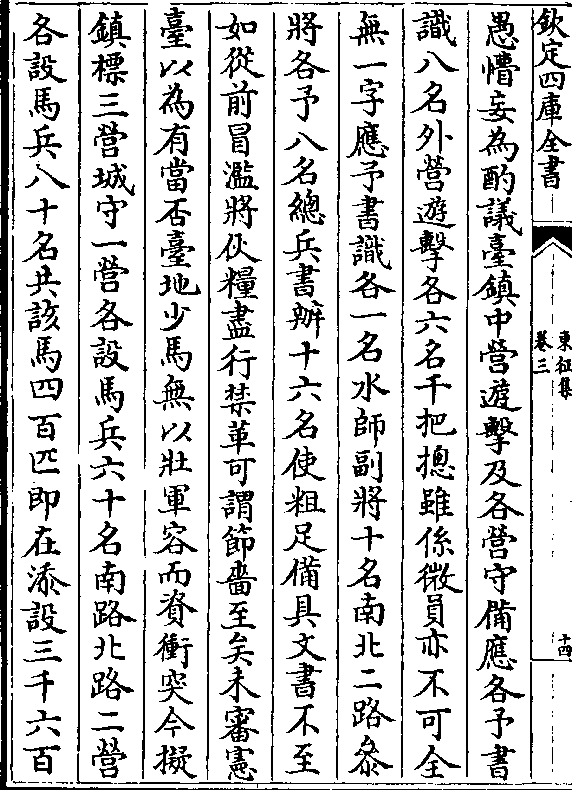 欽定四庫全書
東征集
卷三
十四
愚懵妄為酌議臺鎮中營遊擊及各營守備應各予書
識八名外營遊擊各六名千把摠雖係微員亦不可全
無一字應予書識各一名水師副將十名南北二路叅
將各予八名總兵書辦十六名使粗足備具文書不至
如從前冒濫將伙糧盡行禁革可謂節嗇至矣未審憲
臺以為有當否臺地少馬無以壯軍容而資衝突今擬
鎮標三營城守一營各設馬兵六十名南路北路二營
各設馬兵八十名共該馬四百匹即在添設三千六百